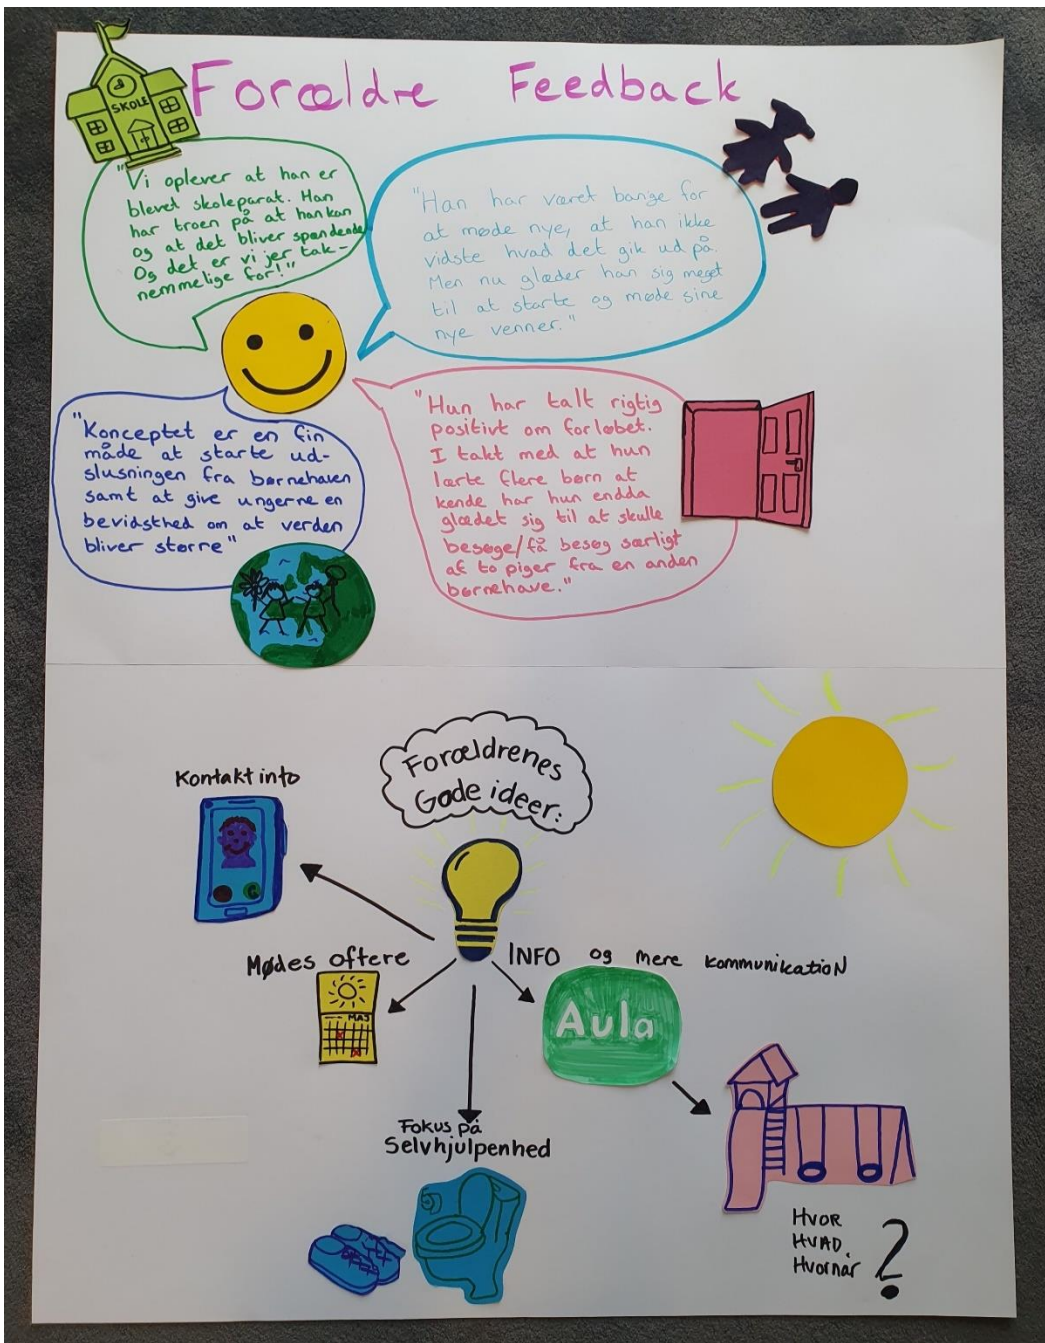 Forældre Feedback
SKOLE
"Vi oplever at han er
blevet skoleparat. Han
har troen på at han kan
og at det bliver spændende
Og det er vi jer tak-
nemmelige for!"
"Han har været bange for
at møde nye, at han ikke
vidste hvad det gik ud på.
Men nu glæder han sig meget
til at starte og møde sine
nye venner."
"Konceptet er en fin
måde at starte ud-
slusningen fra børnehaven
samt at give ungerne en
bevidsthed om at verden
bliver større"
"Hun har talt rigtig
positivt om forløbet.
I takt med at hun
lærte flere børn at
kende har hun endda
glædet sig til at skulle
besøge/få besøg særligt
af to piger fra en anden
børnehave."
Forældrenes
Gode ideer:
Kontakt info
Mødes oftere
MAJ
INFO og mere kommunikation
Aula
Fokus på
Selvhjulpenhed
HVOR
HVAD
Hvornår
?